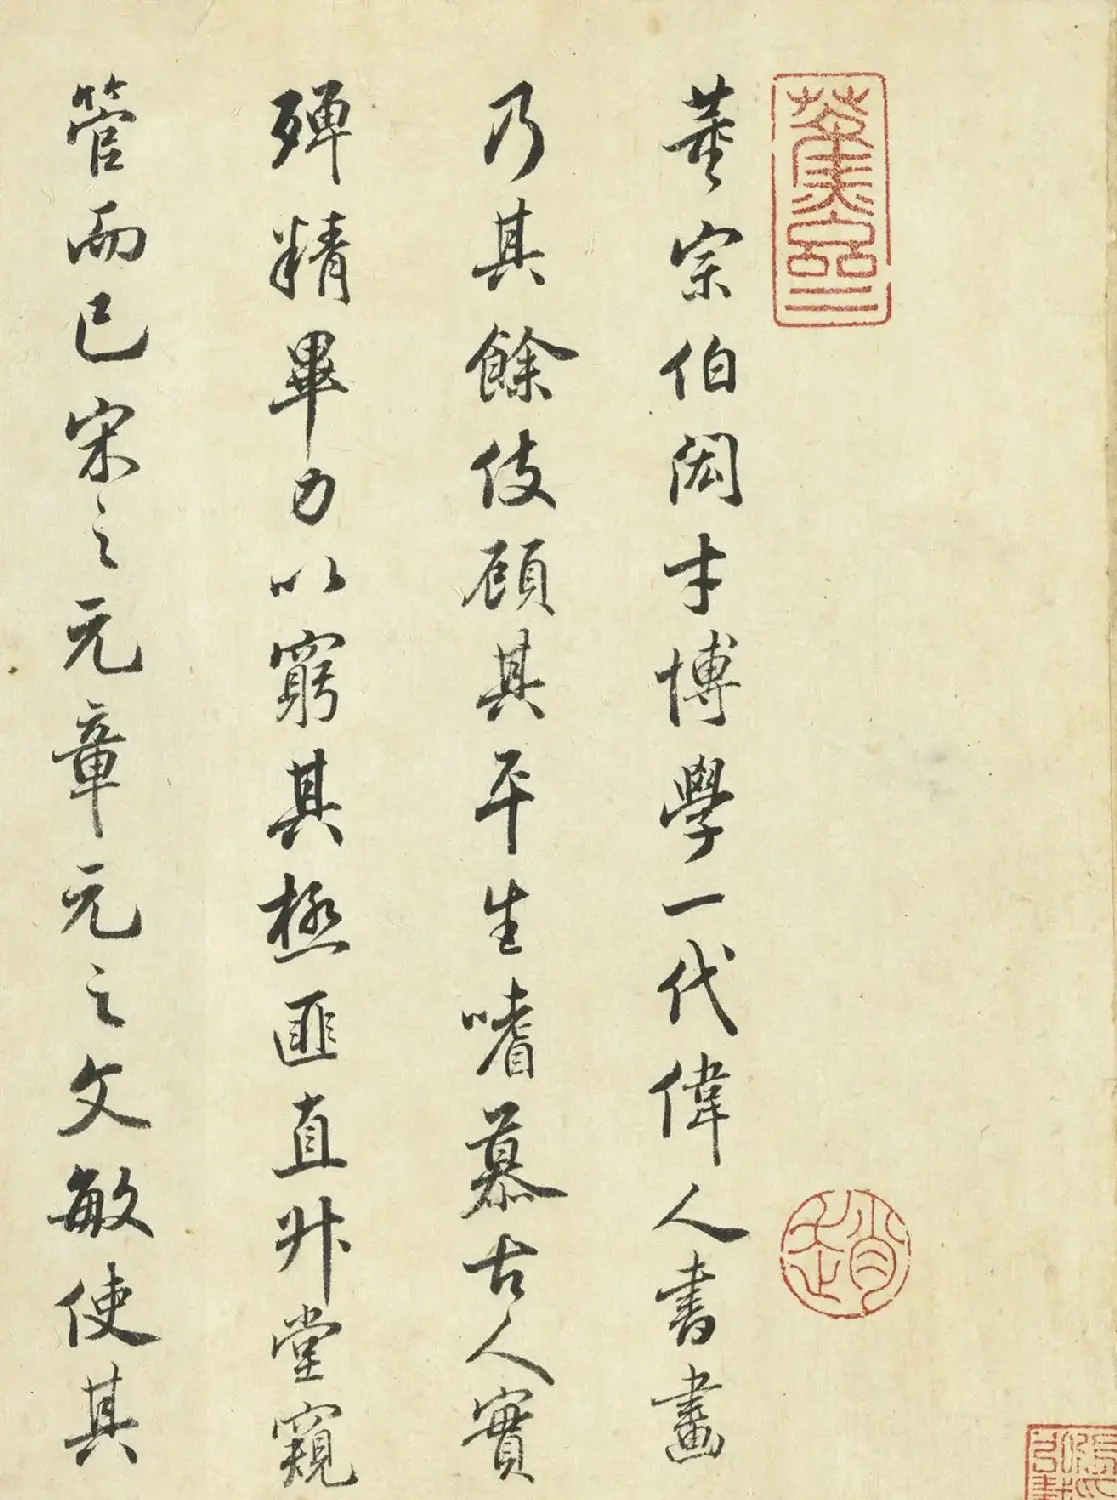 董宗伯閎才博學一代偉人書畫
乃其餘伎顧其平生嗜慕古人實
殫精畢力以窮其極匪直升堂窺
管而已宋之元章元之文敏使其